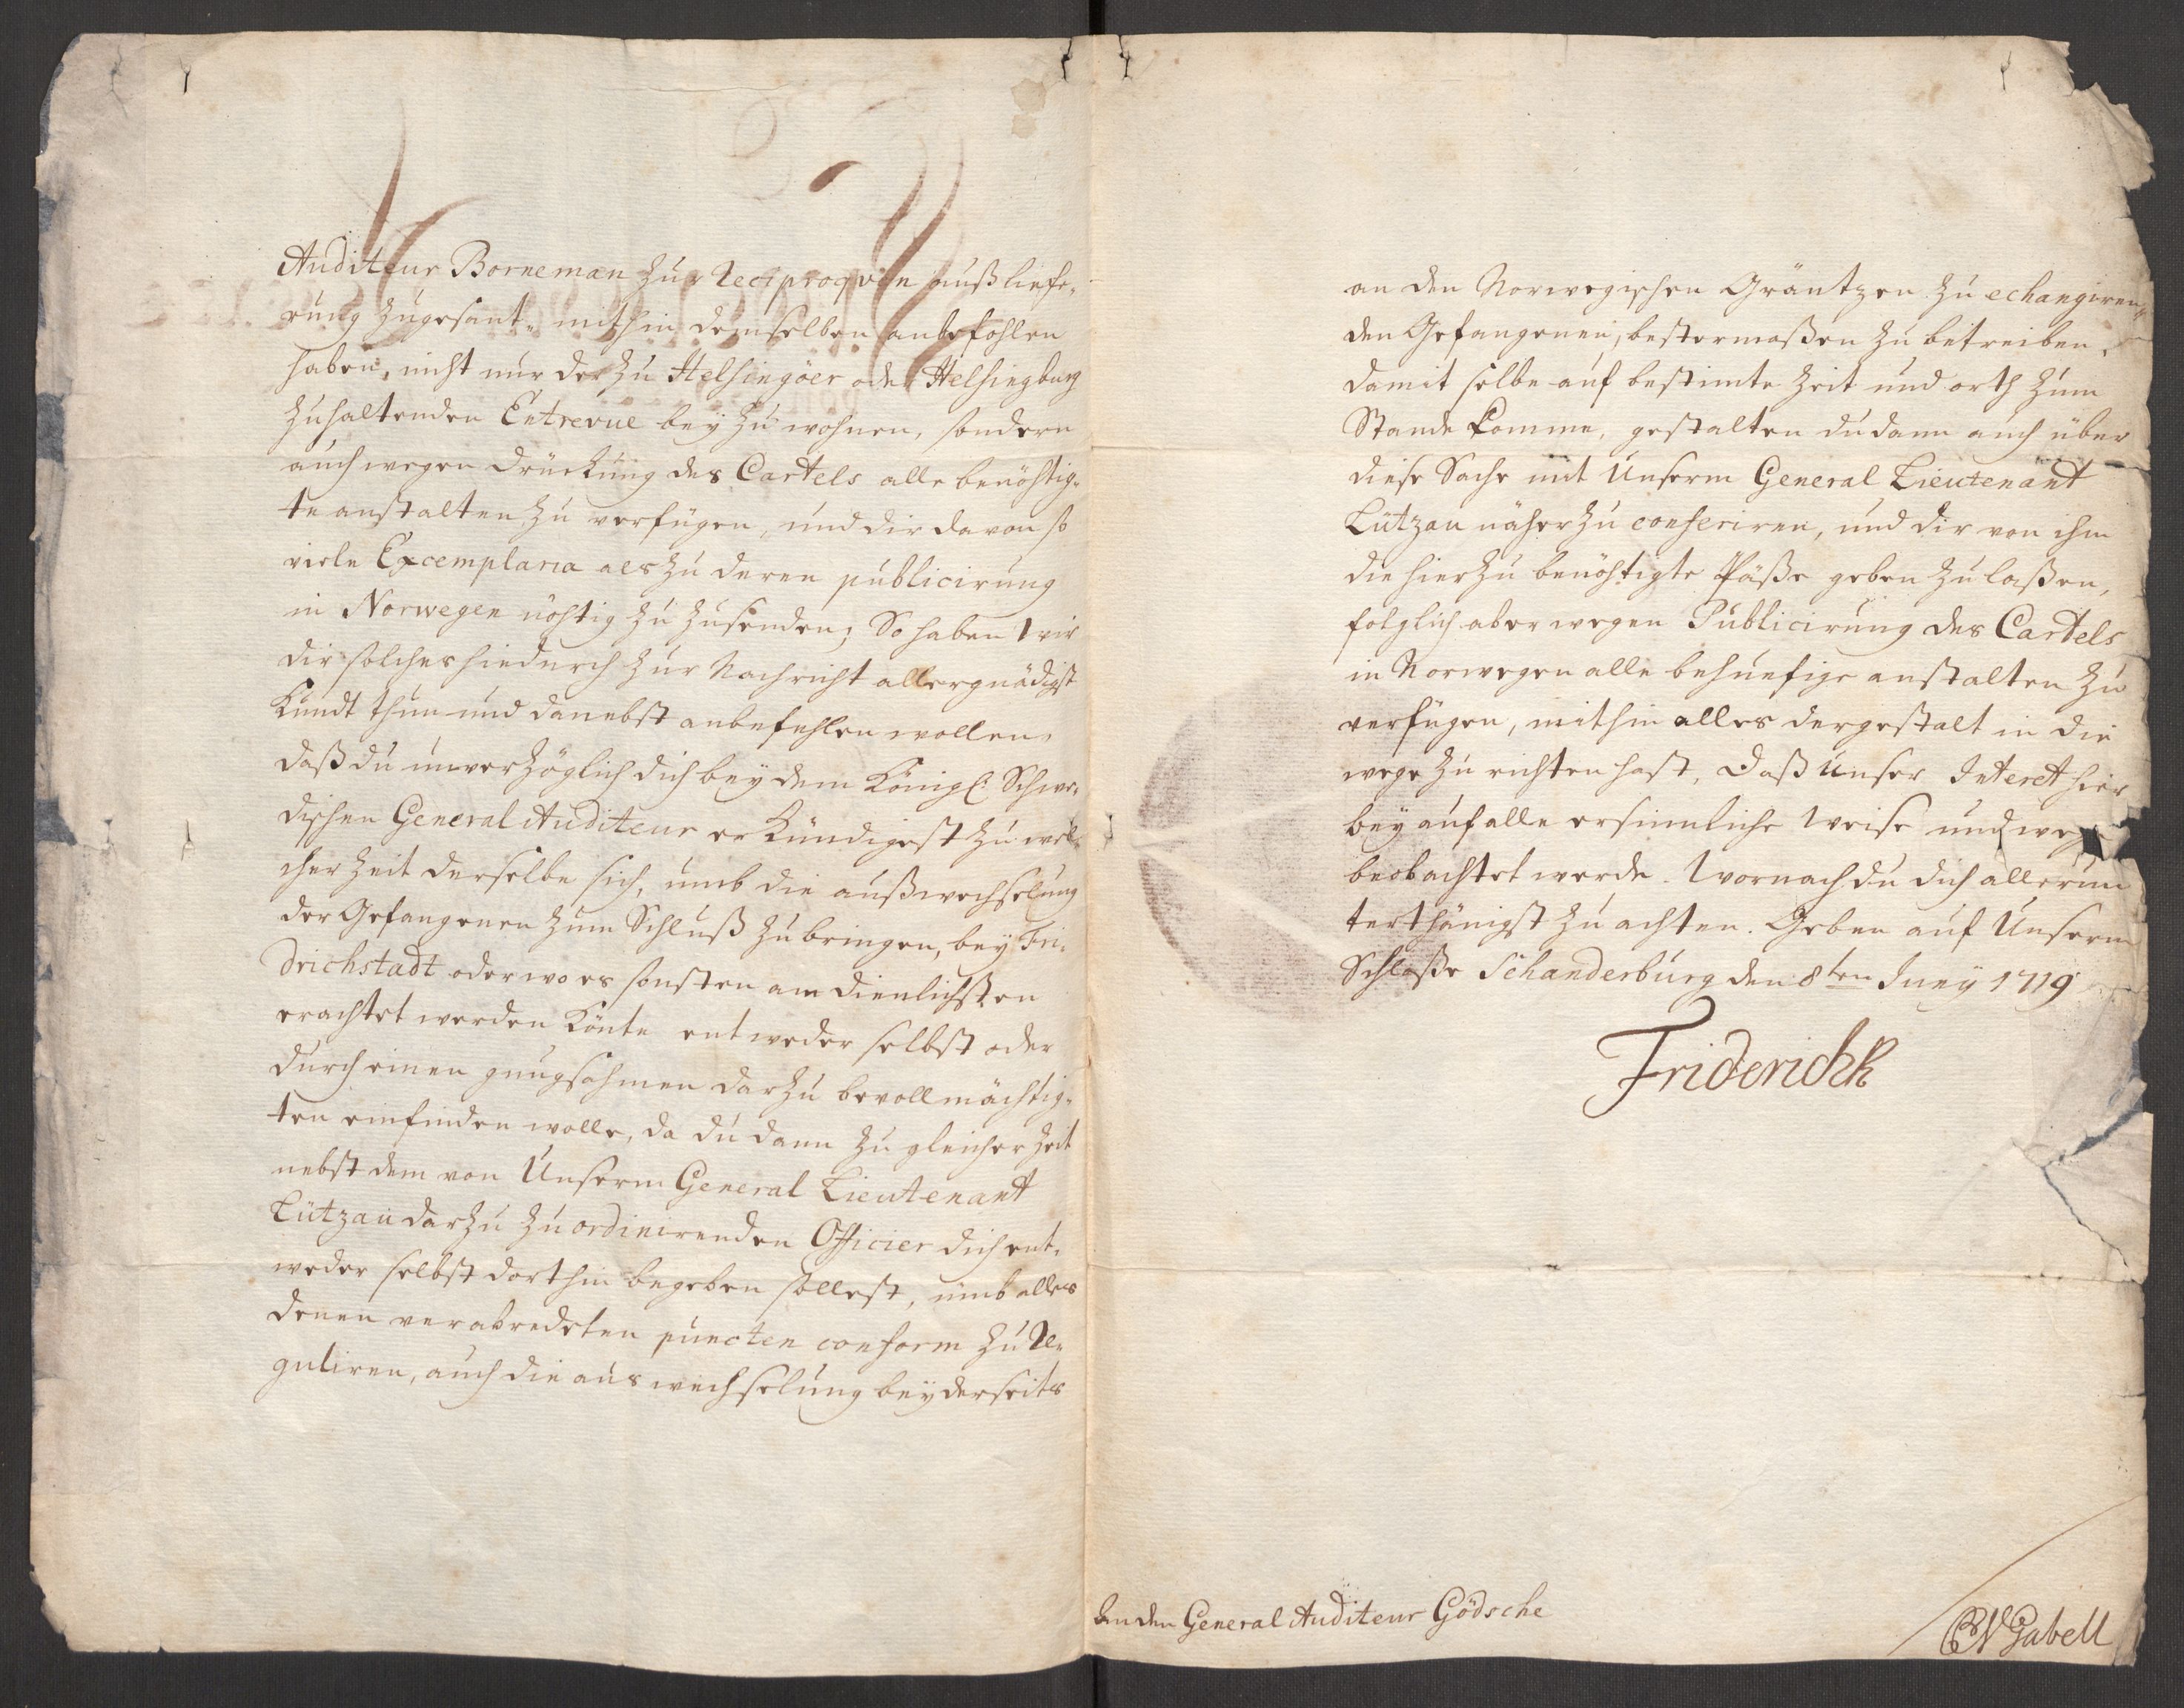 Auditeur Borneman zur Reciproqven außliefe-
rung zugesant, mithin demselben anbefohlen
haben, nicht nur der zu Helsingöer oder Helsingburg
zuhaltenden Entrevue bey zu wohnen, sondern
auch wegen drückung des Cartels alle benöhtig-
te anstalten zu verfügen, und dir davon so
viele Excemplaria als zu deren publicirung
in Norwegen nöhtig zu zusenden; So haben Wir
dir solches hiedurch zur Nachricht allergnädigst
Kundt thun und danebst anbefehlen wollen,
daß du unverzöglich dich bey dem Königl: Schwe-
dischen General Auditeur erkündigest zu wel-
cher Zeit derselbe sich, umb die außwechselung
der Gefangenen zum Schluß zu bringen, bey Fri-
drichstadt oder wo es sonsten am dienlichsten
erachtet werden könte entweder selbst oder
durch einen gnugsahmen darzu bevollmächtig-
ten einfinden wolle, da du dann zu gleicher Zeit
nebst dem von Unserm General Lieutenant
Lützau darzu zu ordinirenden Officier dich ent-
weder selbst dorthin begeben sollest, umb alles
denen verabredeten puncten conform zu Re-
guliren, auch die auswechselung beyderseits
an den Norwegischen Gräntzen zu echangiren-
den Gefangenen, bestermaßen zu betreiben,
damit selbe auf bestimte Zeit und orth zum
Stande komme, gestalten du dann auch über
diese Sache mit Unserm General Lieutenant
Lützau näher zu conferiren, und dir von ihm
die hierzu benöhtigte Päße geben zu laßen,
folglich aber wegen Publicirung des Cartels
in Norwegen alle behuefige anstalten zu
verfügen, mithin alles dergestalt in die
wege zu richten hast, daß Unser Interet hier
bey auf alle ersinnliche Weise und
beobachtet werde. Wornach du dich allerun
terthänigst zu achten. Geben auf Unserm
Schloße Schanderburg den 8ten Juny 1719
Friderich R
An den General Auditeur Gödsche
CN Gabell